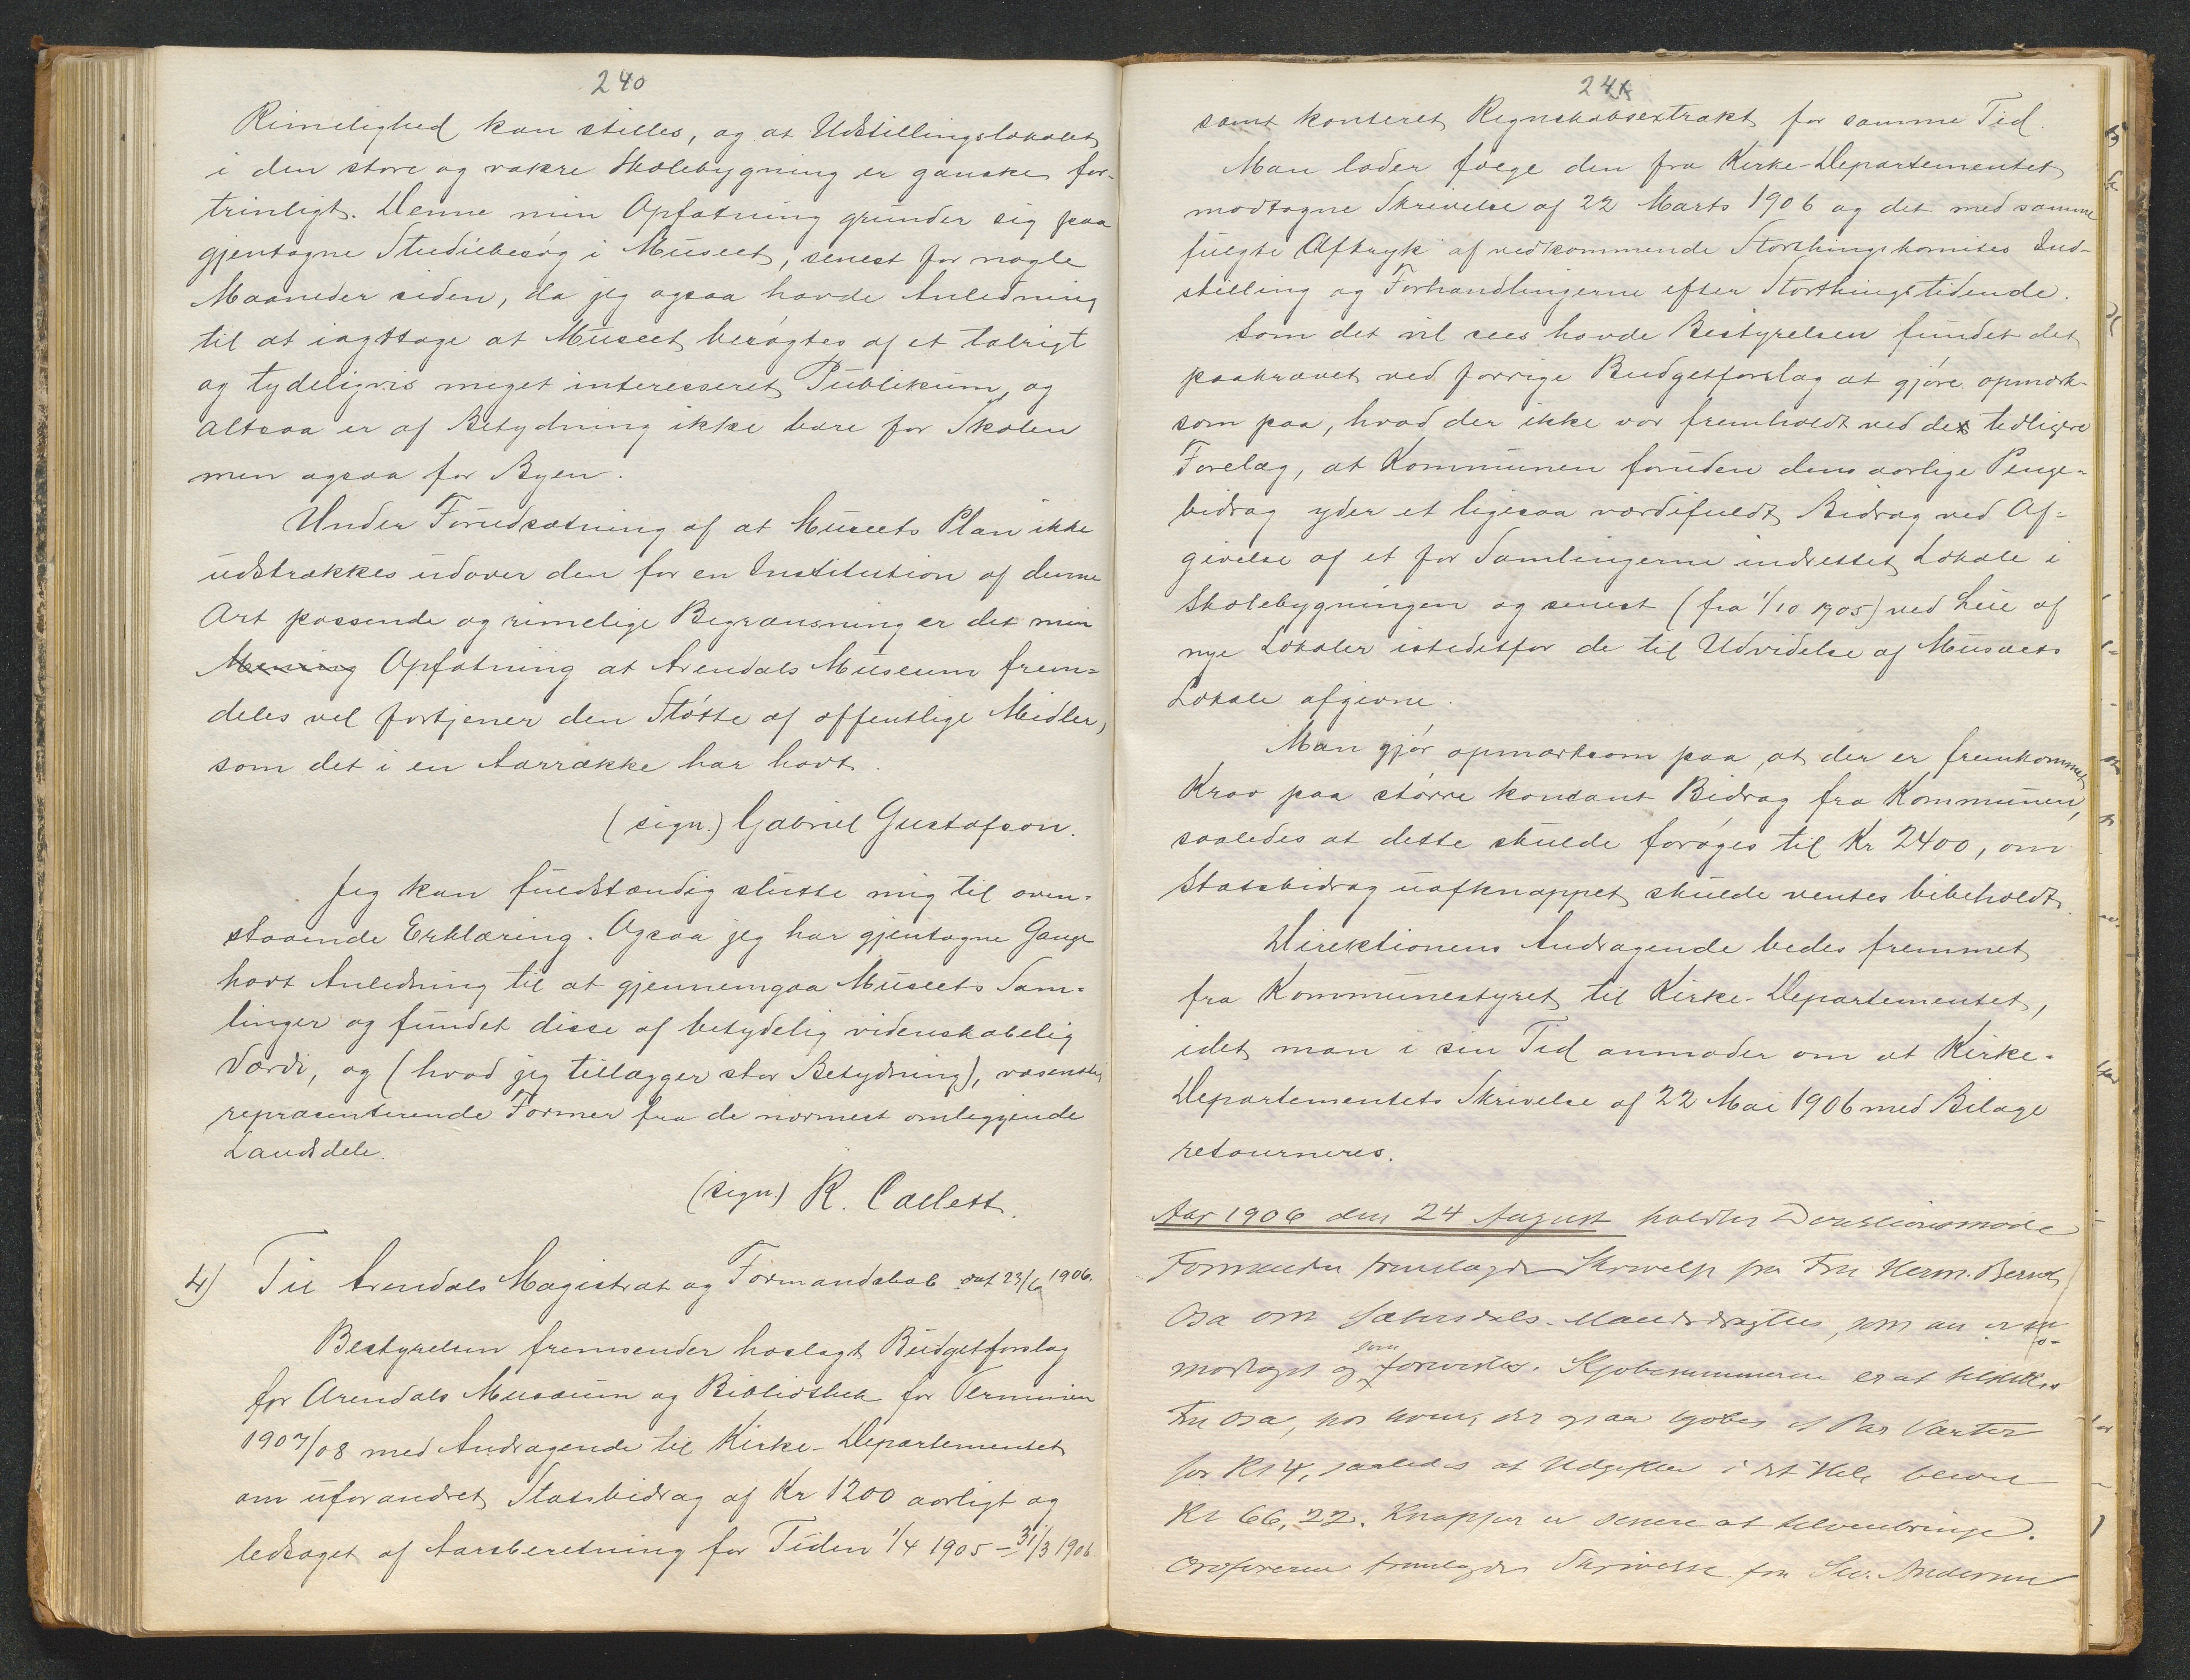 240
Rimelighed kan stilles, og at Udstillingslokalet
i den store og vakre Skolebygning er ganske for-
trinligt. Denne min Opfatning grunder sig paa
gjentagne Studiebesøg i Museet, senest for nogle
Maaneder siden, da jeg ogsaa havde Anledning
til at iagttage at Museet besøgtes af et talrigt
og tydeligvis meget interesseret Publikum, og
altsaa er af Betydning ikke bare for Skolen
men ogsaa for Byen.
Under Forudsætning af at Museets Plan ikke
udstrækkes udover den for en Institution af denne
Art passende og rimelige Begrænsning er det min
Mening Opfatning at Arendals Museum frem=
deles vel fortjener den Støtte af offentlige Midler,
som det i en Aarrække har havt.
(sign.) Gabriel Gustafson.
Jeg kan fuldstændig slutte mig til oven=
staaende Erklæring. Ogsaa jeg har gjentagne Gange
havt Anledning til at gjennemgaa Museets Sam=
linger og fundet disse af betydelig videnskabelig
Værdi, og (hvad jeg tillægger stor Betydning), væsentlig
repræsenterende Former fra de nærmest omliggende
Landsdele.
(sign) R. Collett.
4) Til Arendals Magistrat og Formandskab dat 23/6 1906.
Bestyrelsen fremsender hoslagt Budgetforslag
for Arendals Musæum og Bibliothek for Terminen
1907/08 med Andragende til Kirke-Departementet
om uforandret Statsbidrag af Kr 1200 aarligt og
ledsaget af Aarsberetning for Tiden 1/4 1905 – 31/3 1906
241
samt konteret Regnskabsextrakt for samme Tid.
Man lader følge den fra Kirke-Departementet
modtagne Skrivelse af 22 Marts 1906 og det med samme
fulgte Aftryk af vedkommende Storthingskomites Ind-
stilling og Forhandlingerne efter Storthingstidende.
Som det vil sees havde Bestyrelsen fundet det
paakrævet ved forrige Budgetforslag at gjøre opmærk-
som paa, hvad der ikke var fremholdt ved de tidligere
Forelæg, at Kommunen foruden dens aarlige Penge=
bidrag yder et ligesaa værdifuldt Bidrag ved Af=
givelse af et for Samlingerne indrettet Lokale i
Skolebygningen og senest (fra 1/10 1905) ved Leie af
nye Lokaler istedetfor de til Udvidelse af Musæets
Lokale afgivne.
Man gjør opmærksom paa, at der er fremkommet
Krav paa større kontant Bidrag fra Kommunen,
saaledes at dette skulde forøges til Kr 2400, om
Statsbidrag uafknappet skulde ventes bibeholdt.
Direktionens Andragende bedes fremmet
fra Kommunestyret til Kirke-Departementet,
idet man i sin Tid anmoder om at Kirke=
Departementets Skrivelse af 22 Mai 1906 med Bilage
retourneres.
Aar 1906 den 24 August holdtes Direktionsmøde
Formanden fremlagde Skrivelse fra Fru Herm. Bernd
Osa om Sætersdals-Mandsdragten, som nu er
modtaget og som forevistes. Kjøbesummen er at tilstilles
Fru Osa, hos hvem der ogsaa kjøbes et Par Vanter
for Kr 4, saaledes at Udgiften i det Hele bliver
Kr 66,22. Knapper er senere at tilveiebringe.
Ordføreren fremlagde Skrivelse fra Andersen